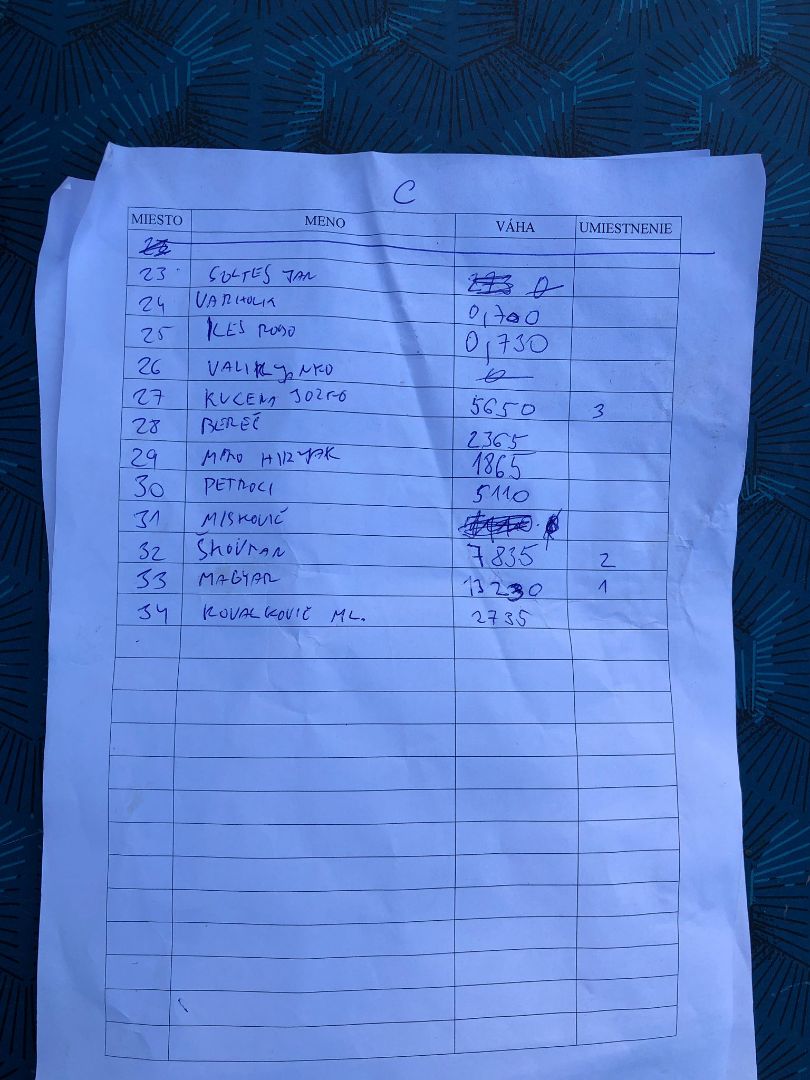 C
MIESTO MENO VÁHA UMIESTNENIE
23 SOLTES JAN 0
24 VARHOLIK 0,700
25 KES ROBO 0,730
26 0
27 KUCERA JOZFO 5650 3
28 BEREČ 2365
29 MIRO HIRJAK 1865
30 PETROCI 5110
31 MISKOVIČ
32 ŠKOVRAN 7835 2
33 MAGYAR 13230 1
34 KOVALKOVIČ ML. 2735